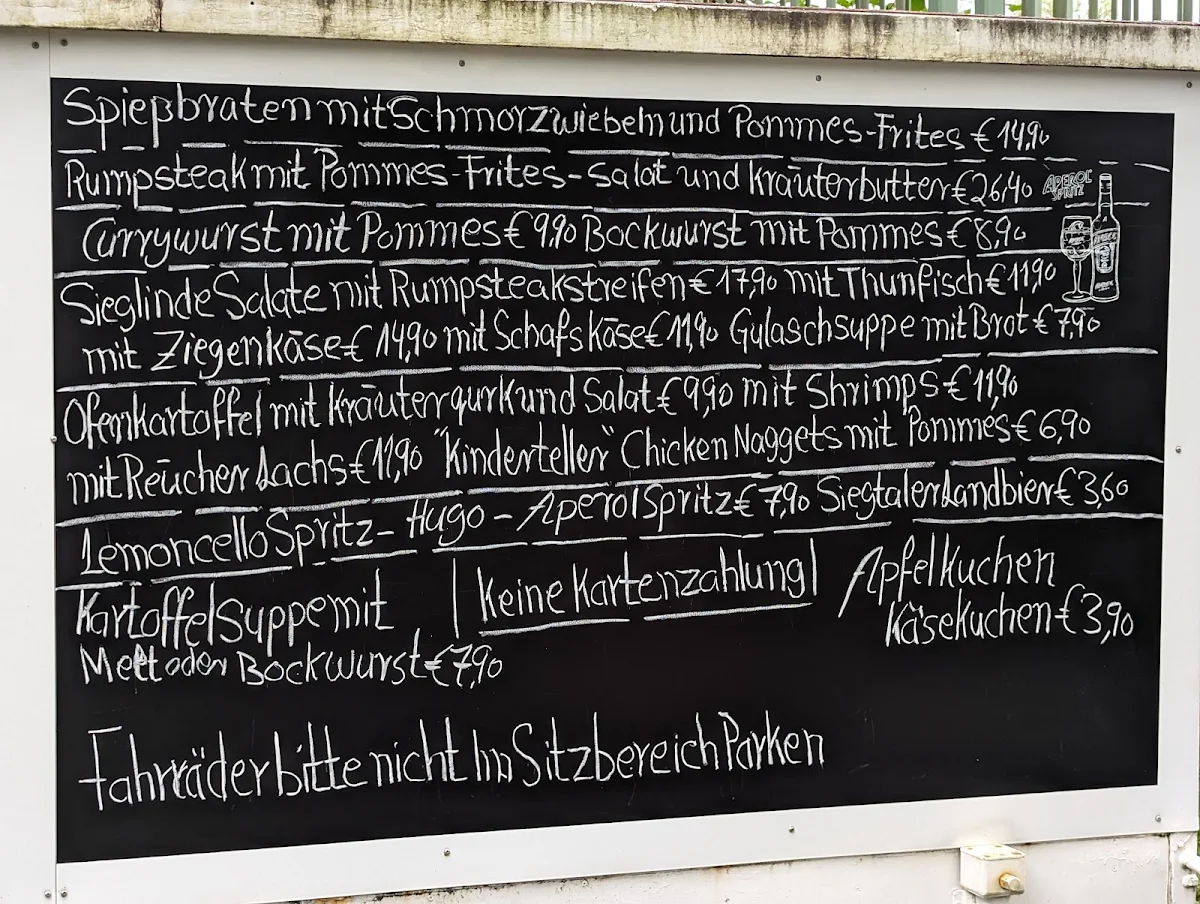 Spießbraten mit Schmorzwiebeln und Pommes-Frites € 14,90
Rumpsteak mit Pommes-Frites-Salat und Kräuterbutter € 26,40
APEROL
SPRITZ
Currywurst mit Pommes € 9,90 Bockwurst mit Pommes € 8,90
Sieglinde Salate mit Rumpsteakstreifen € 17,90 mit Thunfisch € 11,90
mit Ziegenkäse € 14,90 mit Schafskäse € 11,90 Gulaschsuppe mit Brot € 7,90
Ofenkartoffel mit Kräuterqurk und Salat € 9,90 mit Shrimps € 11,90
mit Reücher Lachs € 11,90 "Kinderteller" Chicken Naggets mit Pommes € 6,90
Lemoncello Spritz - Hugo - Aperol Spritz € 7,90 Siegtaler Landbier € 3,60
Kartoffelsuppe mit
Mett oder Bockwurst € 7,90
Keine Kartenzahlung
Apfelkuchen
Käsekuchen € 3,90
Fahrräder bitte nicht Im Sitzbereich Parken